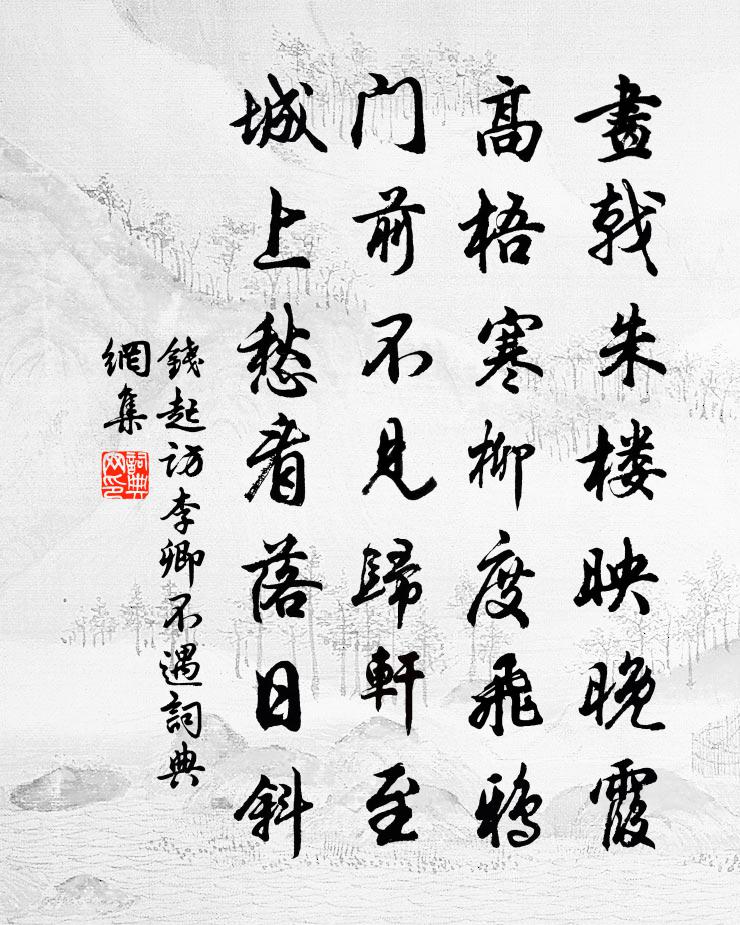 畫戟朱楼映晚霞
高梧寒柳度飛鴉
门前不見歸軒至
城上愁看落日斜
錢起訪李卿不遇詞典
網集
詞典
网印